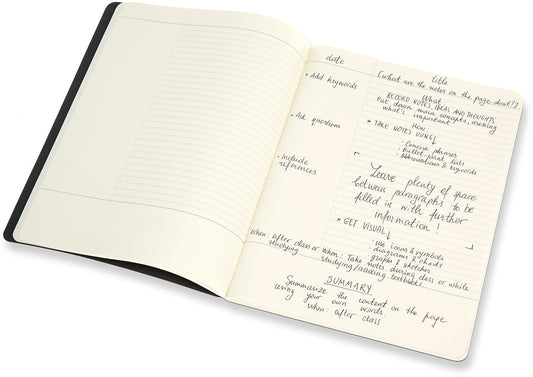 date
title
[what are the notes on the page about?]
• Add keywords
What
RECORD NOTES IDEAS AND THOUGHTS
Put down main concepts, meaning
what's important
• Ask questions
How
* TAKE NOTES USING
• Concise phrases
• Bullet point lists
• Abbreviations & keywords
• Include
references
Leave plenty of space
between paragraphs to be
filled in with further
information!
* GET VISUAL
• Use icons & symbols
• diagrams & charts
• graphs & sketches
When: after class or
studying
When: Take notes during class or while
studying/reading textbooks.
SUMMARY
Summarize the content on the page
using your own words.
when: after class